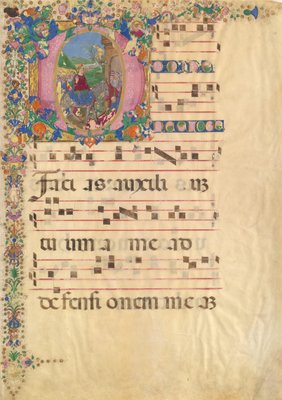 faci as auxili uz
tu um a me ad
defensi onem me az